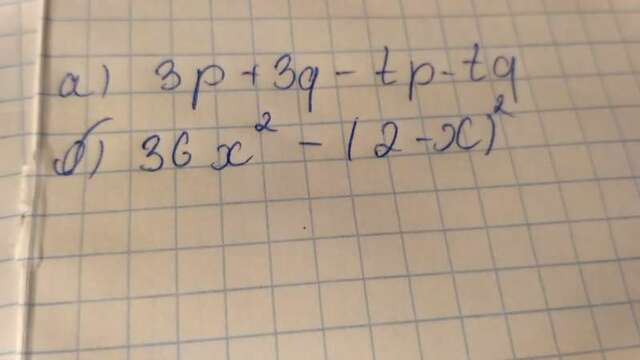 а) 3p + 3q - tp - tq
б) 36x² - (2-x)²